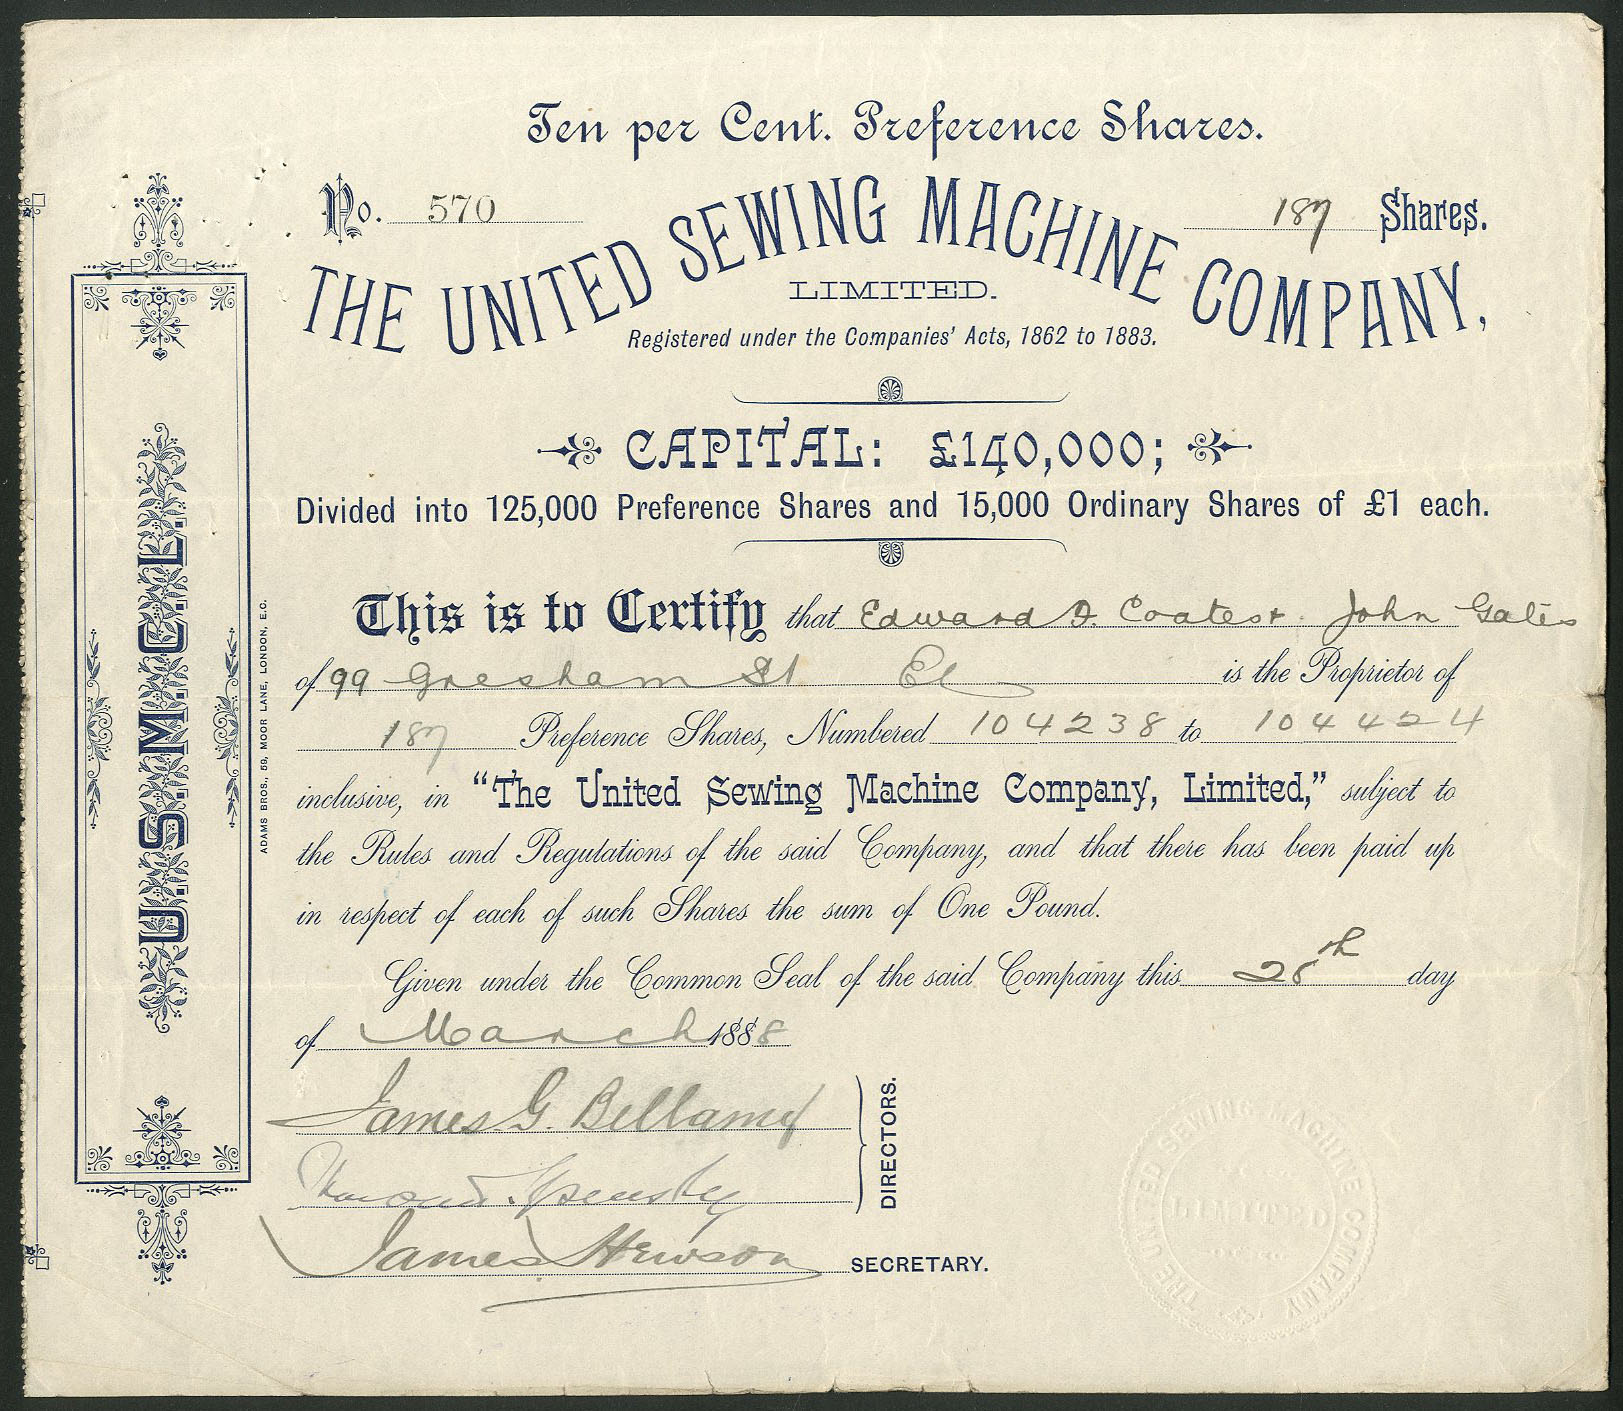 Ten per Cent. Preference Shares.
No. 570
187 Shares.
THE UNITED SEWING MACHINE COMPANY,
LIMITED.
Registered under the Companies' Acts, 1862 to 1883.
CAPITAL: £140,000;
Divided into 125,000 Preference Shares and 15,000 Ordinary Shares of £1 each.
This is to Certify that Edward F. Coates & John Gates
of 99 Gresham St EC is the Proprietor of
187 Preference Shares, Numbered 104238 to 104424
inclusive, in "The United Sewing Machine Company, Limited," subject to
the Rules and Regulations of the said Company, and that there has been paid up
in respect of each of such Shares the sum of One Pound.
Given under the Common Seal of the said Company this 28th day
of March 1888
James G. Bellamy
DIRECTORS.
James Hewson SECRETARY.
U.S.M.C.L.
ADAMS BROS., 59, MOOR LANE, LONDON, E.C.
THE UNITED SEWING MACHINE COMPANY
LIMITED